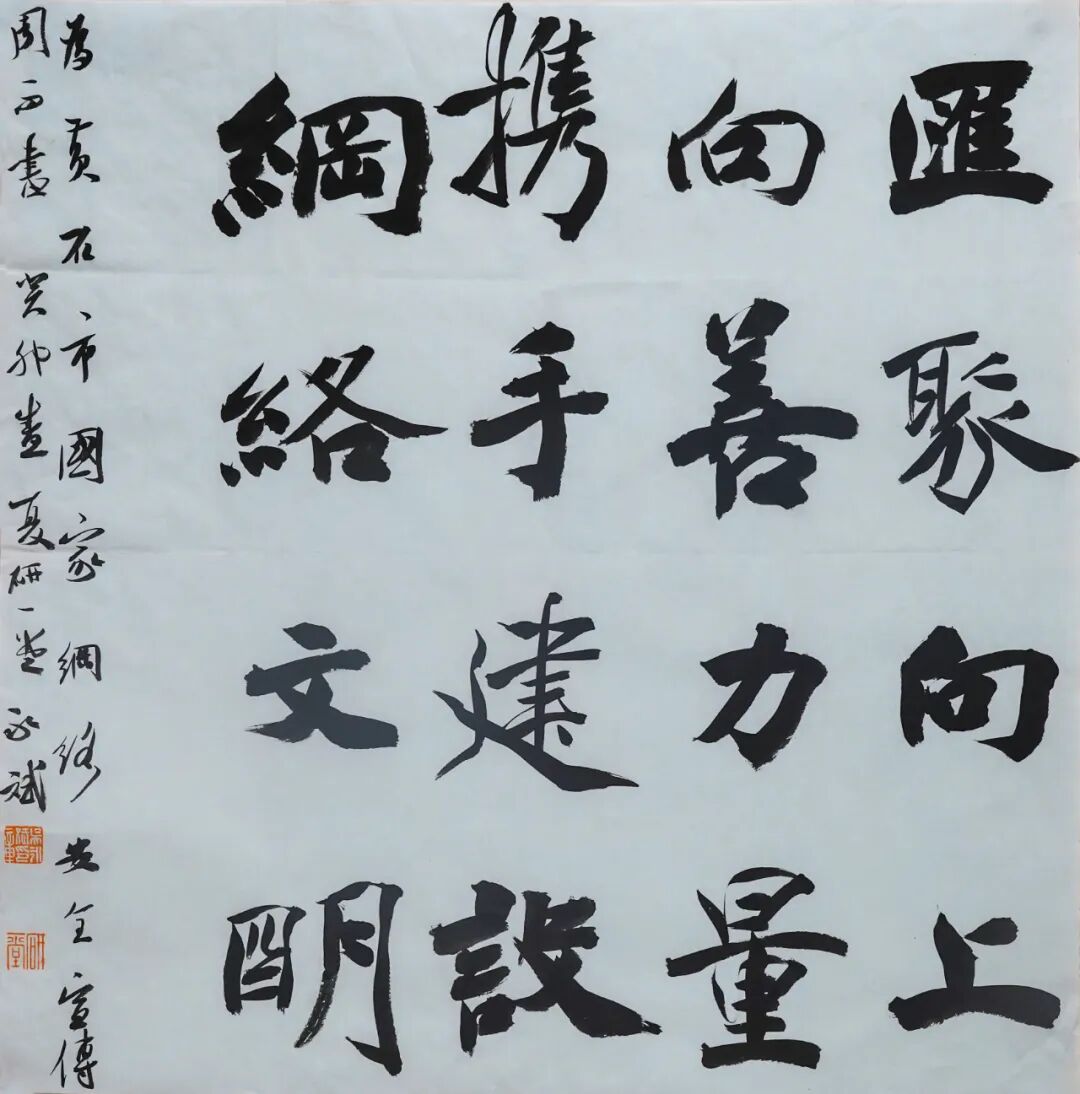 匯聚向上
向善力量
携手建設
網絡文明
為黃石市國家網絡安全宣傳
周而書癸卯盛夏研一堂永斌